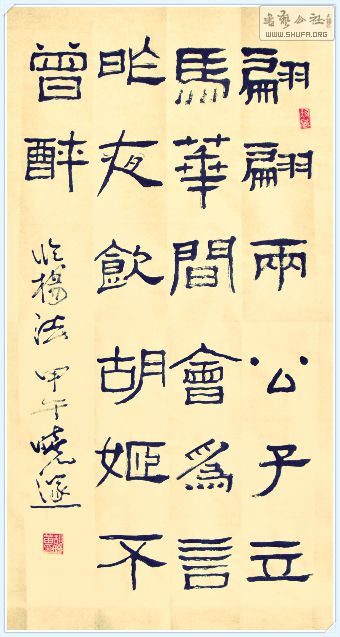 翩翩兩公子立
馬華間會爲言
昨夜飲胡姬不
曾醉
臨楊法甲午曉遂
書藝公社
WWW.SHUFA.ORG